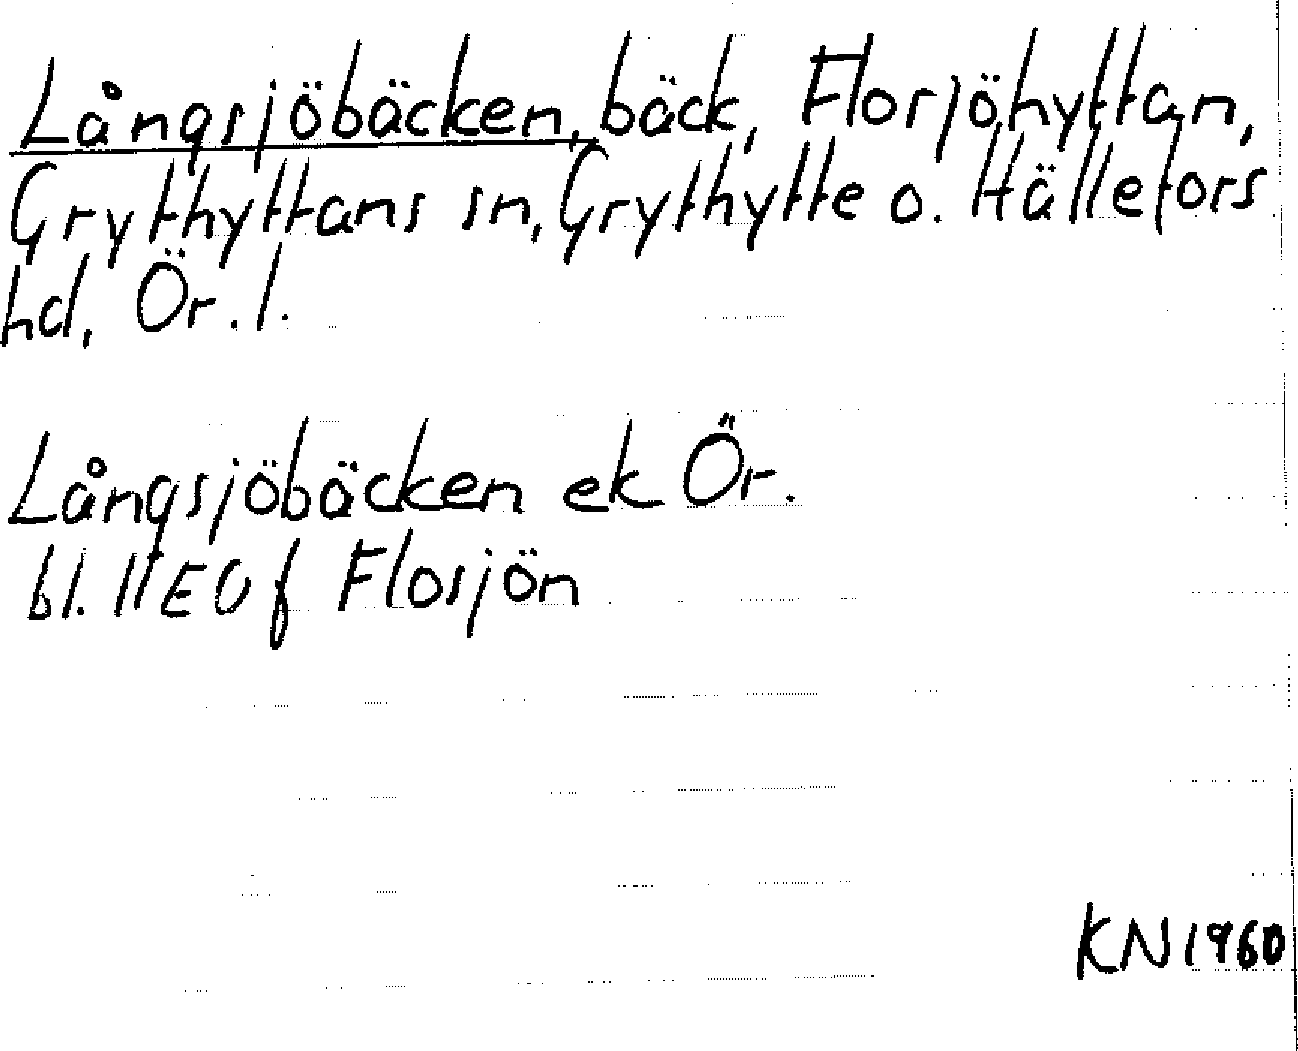 Långsjöbäcken, bäck, Florjöhyttan,
Grythyttans sn, Grythytte o. Hällefors
hd, Ör. l.
Långsjöbäcken ek Ör.
bl. 11E 0f Flosjön
KN 1960